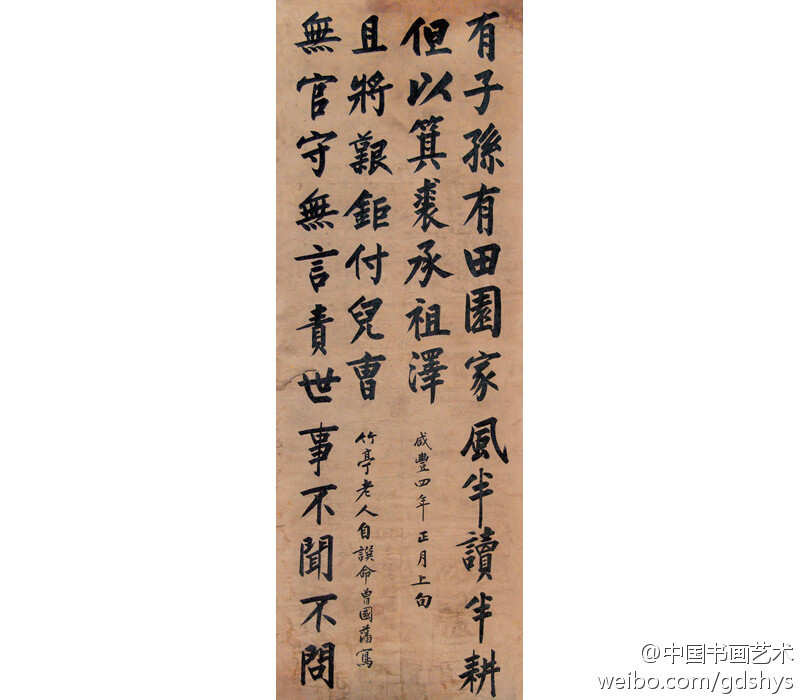 有子孫有田園家風半讀半耕
但以箕裘承祖澤
咸豐四年正月上旬
且將艱鉅付兒曹
竹亭老人自譔命曾國藩寫
無官守無言責世事不聞不問
@中国书画艺术
weibo.com/gdshys